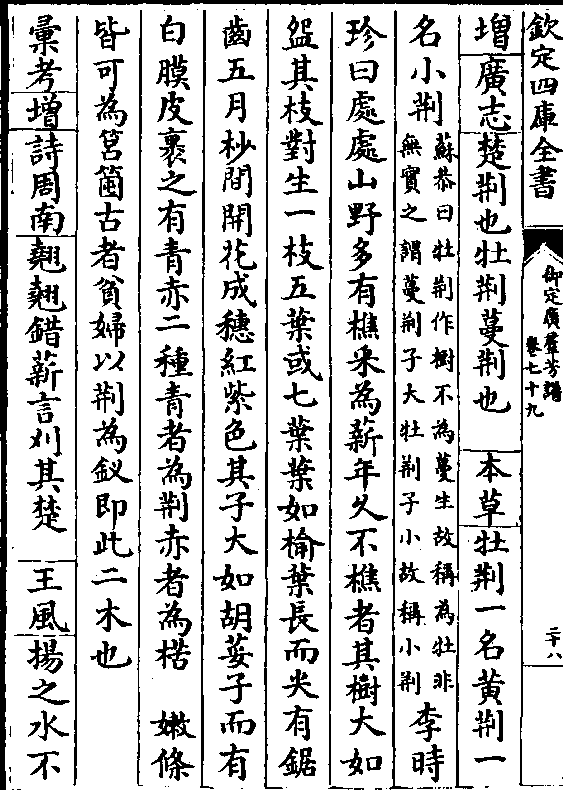 欽定四庫全書
御定廣羣芳譜
卷七十九
二十八
增廣志楚荆也牡荆蔓荆也 本草牡荆一名黄荆一
名小荆蘇恭曰牡荆作樹不為蔓生故稱為牡非
無實之謂蔓荆子大牡荆子小故稱小荆李時
珍曰處處山野多有樵采為薪年久不樵者其樹大如
盌其枝對生一枝五葉或七葉葉如榆葉長而尖有鋸
齒五月杪間開花成穗紅紫色其子大如胡荽子而有
白膜皮裹之有青赤二種青者為荆赤者為楛 嫩條
皆可為筥箘古者貧婦以荆為釵即此二木也
彙考增詩周南翹翹錯薪言刈其楚 王風揚之水不